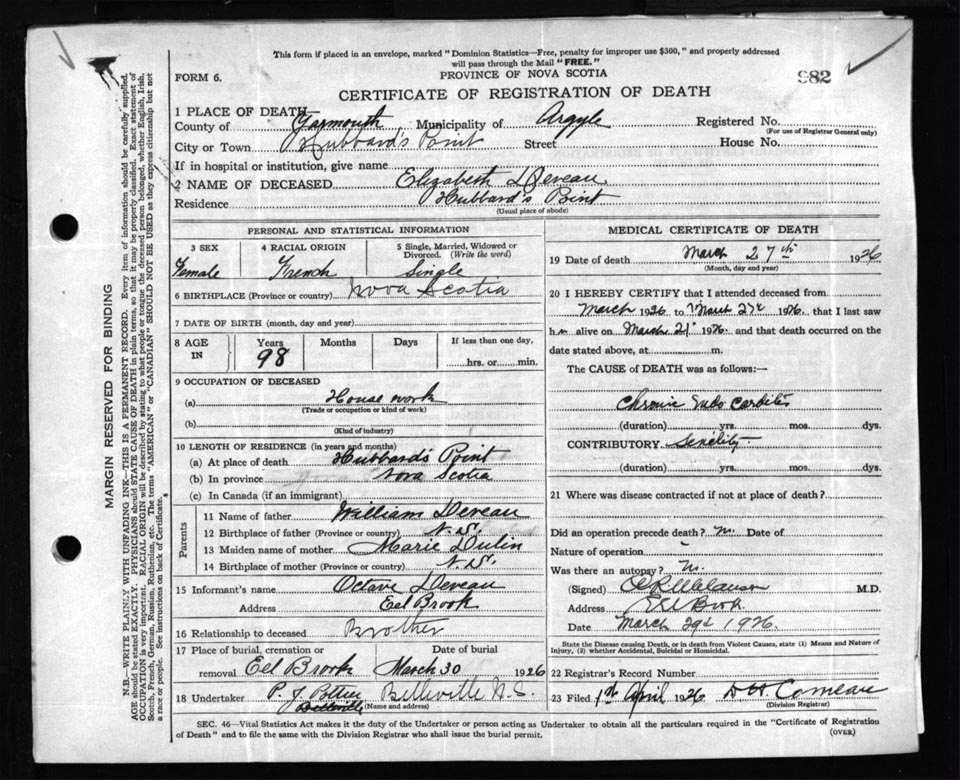 This form if placed in an envelope, marked "Dominion Statistics—Free, penalty for improper use $300," and properly addressed
will pass through the Mail "FREE."
FORM 6.
PROVINCE OF NOVA SCOTIA
982
CERTIFICATE OF REGISTRATION OF DEATH
1 PLACE OF DEATH
County of Yarmouth Municipality of Argyle Registered No.
(For use of Registrar General only)
City or Town Hubbard's Point Street House No.
If in hospital or institution, give name
2 NAME OF DECEASED Elizabeth Deveau
Residence Hubbard's Point
(Usual place of abode)
PERSONAL AND STATISTICAL INFORMATION
3 SEX 4 RACIAL ORIGIN 5 Single, Married, Widowed or
Divorced. (Write the word)
Female French Single
6 BIRTHPLACE (Province or country) Nova Scotia
7 DATE OF BIRTH (month, day and year)
8 AGE IN Years Months Days If less than one day,
98 hrs. or min.
9 OCCUPATION OF DECEASED
(a) House work
(Trade or occupation or kind of work)
(b)
(Kind of industry)
10 LENGTH OF RESIDENCE (in years and months)
(a) At place of death Hubbard's Point
(b) In province Nova Scotia
(c) In Canada (if an immigrant)
Parents
11 Name of father William Deveau
12 Birthplace of father (Province or country) N.S.
13 Maiden name of mother Marie Dulin
14 Birthplace of mother (Province or country) N.S.
15 Informant's name Octave Deveau
Address Eel Brook
16 Relationship to deceased Brother
17 Place of burial, cremation or removal Date of burial
Eel Brook March 30 1926
18 Undertaker P. J. Belleville N.S.
Belleville (Name and address)
MEDICAL CERTIFICATE OF DEATH
19 Date of death March 27th 1926
(Month, day and year)
20 I HEREBY CERTIFY that I attended deceased from
March 1926 to March 1926, that I last saw
h alive on March 21 1926 and that death occurred on the
date stated above, at m.
The CAUSE of DEATH was as follows:—
Chronic Endo Carditis
(duration) yrs. mos. dys.
CONTRIBUTORY Senility
(duration) yrs. mos. dys.
21 Where was disease contracted if not at place of death?
Did an operation precede death? No. Date of
Nature of operation
Was there an autopsy? No.
(Signed) M.D.
Address Eel Brook
Date March 29th 1926
State the Disease causing Death, or in death from Violent Causes, state (1) Means and Nature of
Injury, (2) whether Accidental, Suicidal or Homicidal.
22 Registrar's Record Number
23 Filed April 1926 Comeau
(Division Registrar)
SEC. 46—Vital Statistics Act makes it the duty of the Undertaker or person acting as Undertaker to obtain all the particulars required in the "Certificate of Registration
of Death" and to file the same with the Division Registrar who shall issue the burial permit.
(OVER)
MARGIN RESERVED FOR BINDING
N.B.—WRITE PLAINLY WITH UNFADING INK—THIS IS A PERMANENT RECORD. Every item of information should be carefully supplied.
AGE should be stated EXACTLY. PHYSICIANS should STATE CAUSE OF DEATH in plain terms, so that it may be properly classified. Exact statement of
OCCUPATION is very important. RACIAL ORIGIN will be described by stating to what people or tongue the deceased person belonged, whether English, Irish,
Scotch, French, German, Russian, Ruthenian, etc. The terms "AMERICAN" or "CANADIAN" SHOULD NOT BE USED as they express citizenship but not
a race or people. See instructions on back of Certificate.